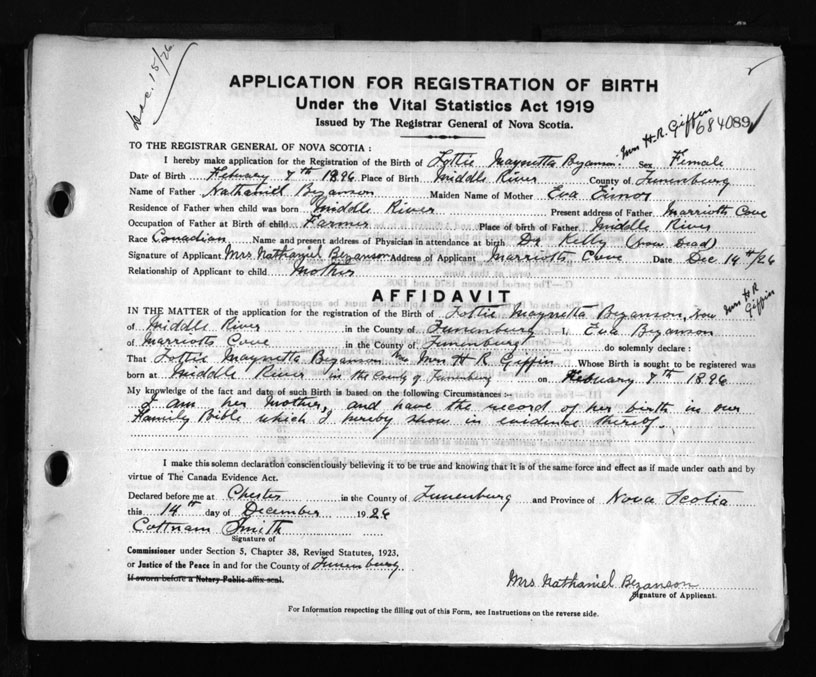 Dec. 15/26
APPLICATION FOR REGISTRATION OF BIRTH
Under the Vital Statistics Act 1919
Issued by The Registrar General of Nova Scotia.
Mrs H. R. Giffin
684089
TO THE REGISTRAR GENERAL OF NOVA SCOTIA :
I hereby make application for the Registration of the Birth of Lottie Maynetta Bezanson Sex Female
Date of Birth February 7th 1896 Place of Birth Middle River County of Lunenburg
Name of Father Nathaniel Bezanson Maiden Name of Mother Eva
Residence of Father when child was born Middle River Present address of Father Marriotts Cove
Occupation of Father at Birth of child Farmer Place of birth of Father Middle River
Race Canadian Name and present address of Physician in attendance at birth Dr Kelly (now Dead)
Signature of Applicant Mrs Nathaniel Bezanson Address of Applicant Marriotts Cove Date Dec 14th/26
Relationship of Applicant to child Mother
AFFIDAVIT
IN THE MATTER of the application for the registration of the Birth of Lottie Maynetta Bezanson, Now Mrs H R Giffin
of Middle River in the County of Lunenburg I, Eva Bezanson
of Marriotts Cove in the County of Lunenburg do solemnly declare :
That Lottie Maynetta Bezanson Now Mrs H R Giffin Whose Birth is sought to be registered was
born at Middle River in the County of Lunenburg on February 7th 1896
My knowledge of the fact and date of such Birth is based on the following Circumstances :-
I am her Mother, and have the record of her birth in our
Family Bible which I hereby show in evidence thereof.
I make this solemn declaration conscientiously believing it to be true and knowing that it is of the same force and effect as if made under oath and by
virtue of The Canada Evidence Act.
Declared before me at Chester in the County of Lunenburg and Province of Nova Scotia
this 14th day of December 1926
Cottnam Smith
Signature of
Commissioner under Section 5, Chapter 38, Revised Statutes, 1923,
or Justice of the Peace in and for the County of Lunenburg
If sworn before a Notary Public affix seal.
Mrs. Nathaniel Bezanson
Signature of Applicant.
For Information respecting the filling out of this Form, see Instructions on the reverse side.